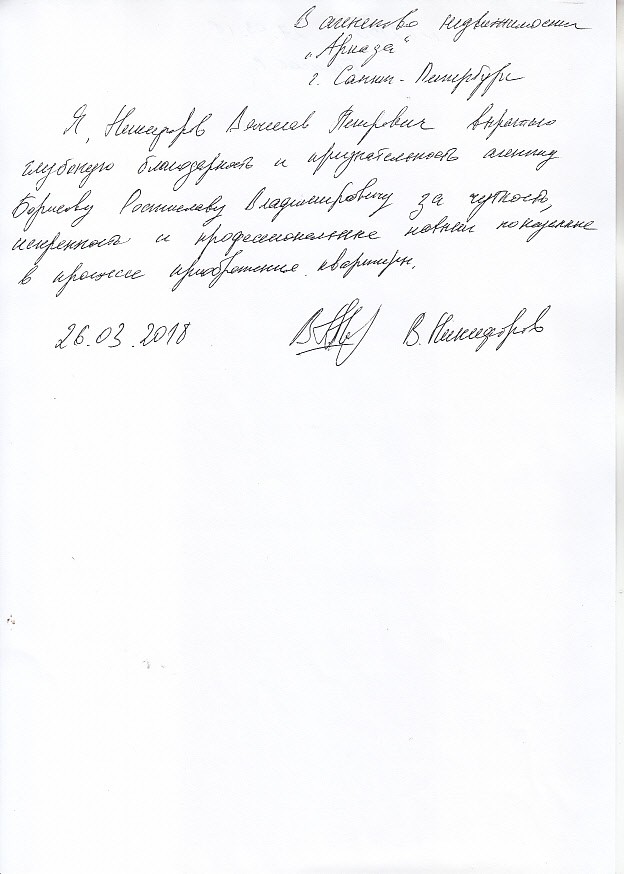 В агенство недвижимости
„Аркада"
г. Санкт-Петербург
Я, Никифоров Петрович выражаю
глубокую благодарность и признательность агенту
Борисову Ростиславу Владимировичу за чуткость,
искренность и профессиональные навыки
в процессе приобретения квартиры.
26.03.2018 В. Никифоров